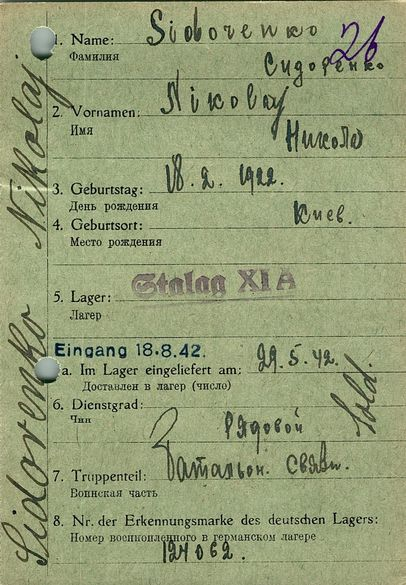 26
1. Name: Sidorenko
Фамилия Сидоренко
2. Vornamen: Nikolaj
Имя Никола
3. Geburtstag: 18. 2. 1922.
День рождения
4. Geburtsort: Киев.
Место рождения
Stalag XI A
5. Lager:
Лагер
Eingang 18.8.42.
a. Im Lager eingeliefert am: 29.5.42.
Доставлен в лагер (число)
6. Dienstgrad: Sold.
Чин Рядовой
7. Truppenteil: батальон. связи.
Воинская часть
8. Nr. der Erkennungsmarke des deutschen Lagers:
Номер военнопленного в германском лагере
124062.
Sidorenko Nikolaj